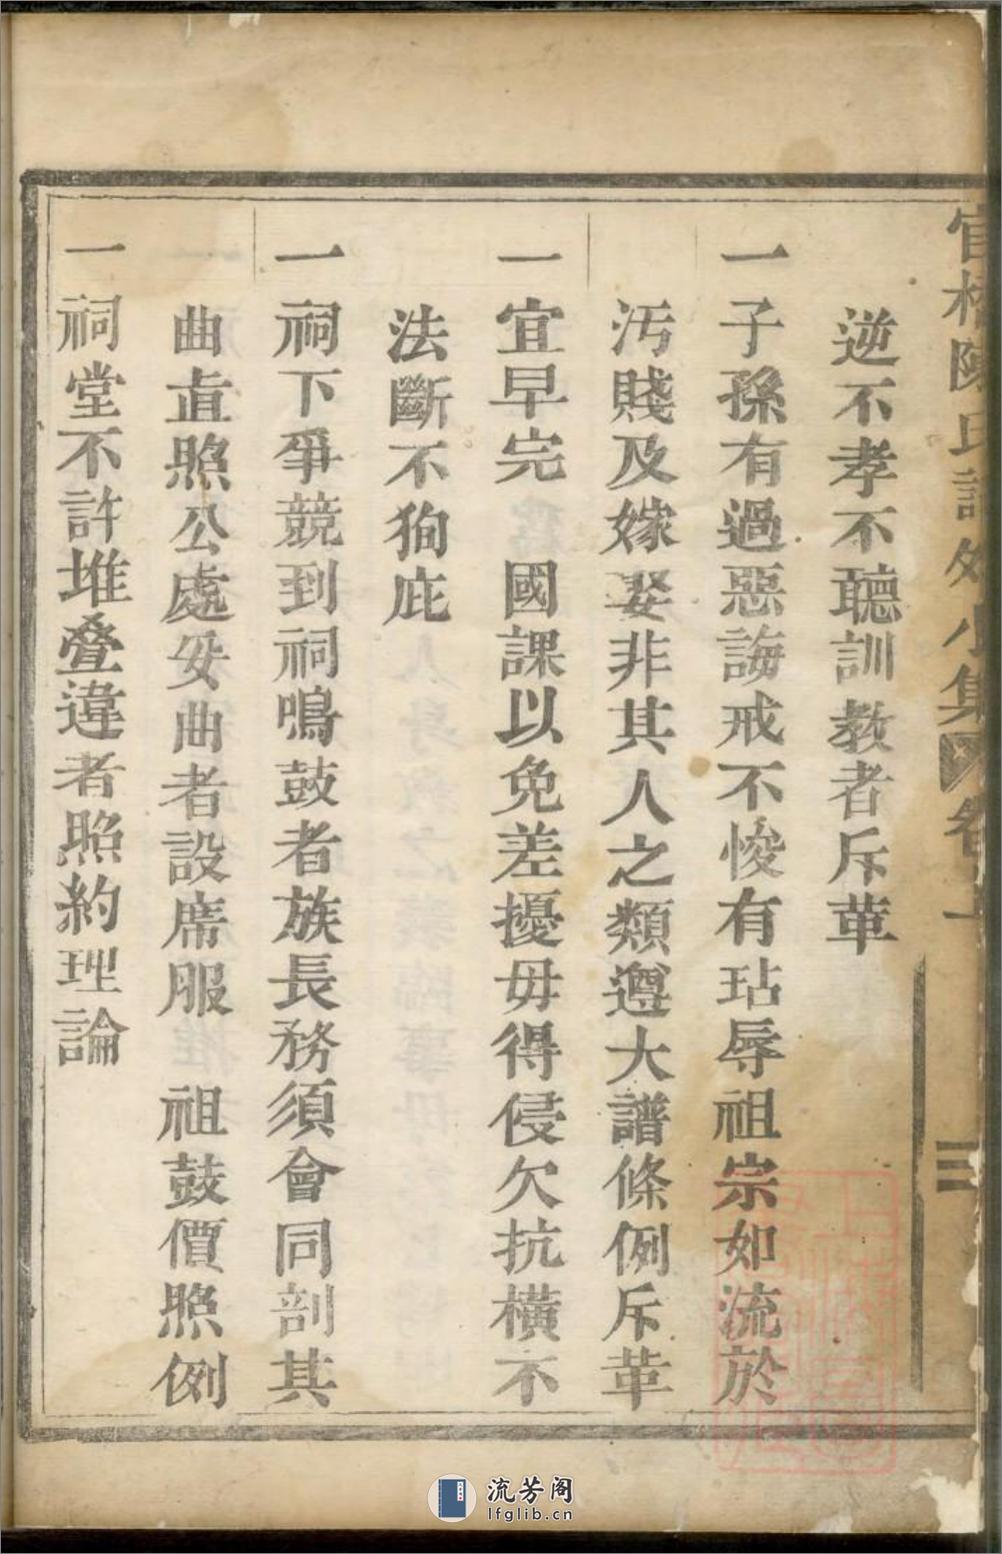 逆不孝不聽訓教者斥革
一子孫有過惡誨戒不悛有玷辱祖宗如流於
汚賤及嫁娶非其人之類遵大譜條例斥革
一宜早完 國課以免差擾毋得侵欠抗橫不
法斷不狥庇
一祠下爭競到祠鳴鼓者族長務須會同剖其
曲直照公處安曲者設席服 祖鼓價照例
一祠堂不許堆叠違者照約理論
陳氏 小集 卷
三
流芳阁
lfglib.cn